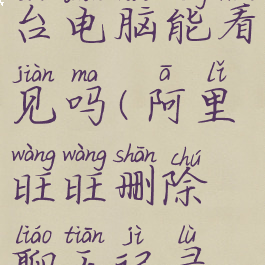 台电脑能看
jiàn ma ā lǐ
见吗(阿里
wàng wàng shān chú
旺旺删除
liáo tiān jì lù
聊天记录